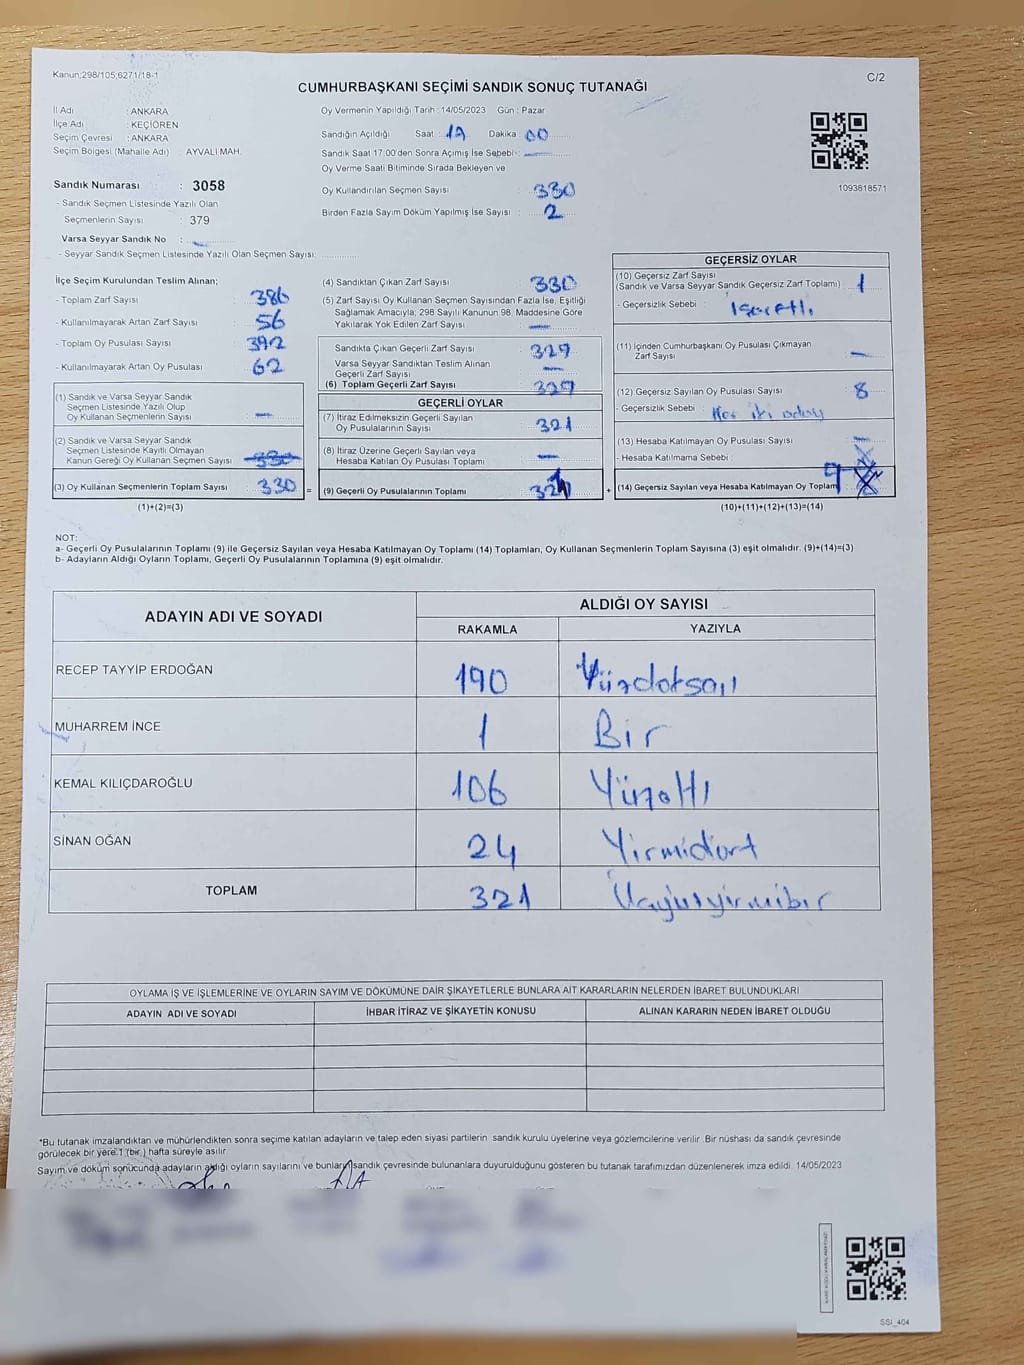 Kanun;298/105;6271/18-1
C/2
CUMHURBAŞKANI SEÇİMİ SANDIK SONUÇ TUTANAĞI
İl Adı : ANKARA
İlçe Adı : KEÇİÖREN
Seçim Çevresi : ANKARA
Seçim Bölgesi (Mahalle Adı) : AYVALI MAH.
Sandık Numarası : 3058
- Sandık Seçmen Listesinde Yazılı Olan
Seçmenlerin Sayısı : 379
Varsa Seyyar Sandık No :
- Seyyar Sandık Seçmen Listesinde Yazılı Olan Seçmen Sayısı:
Oy Vermenin Yapıldığı Tarih : 14/05/2023 Gün : Pazar
Sandığın Açıldığı Saat : Dakika 00
Sandık Saat 17:00'den Sonra Açımış İse Sebebi :
Oy Verme Saati Bitiminde Sırada Bekleyen ve
Oy Kullandırılan Seçmen Sayısı : 330
Birden Fazla Sayım Döküm Yapılmış İse Sayısı : 2
1093818571
İlçe Seçim Kurulundan Teslim Alınan;
- Toplam Zarf Sayısı 386
- Kullanılmayarak Artan Zarf Sayısı : 56
- Toplam Oy Pusulası Sayısı : 392
- Kullanılmayarak Artan Oy Pusulası : 62
(1) Sandık ve Varsa Seyyar Sandık
Seçmen Listesinde Yazılı Olup
Oy Kullanan Seçmenlerin Sayısı : —
(2) Sandık ve Varsa Seyyar Sandık
Seçmen Listesinde Kayıtlı Olmayan
Kanun Gereği Oy Kullanan Seçmen Sayısı : 330
(3) Oy Kullanan Seçmenlerin Toplam Sayısı : 330 =
(1)+(2)=(3)
(4) Sandıktan Çıkan Zarf Sayısı : 330
(5) Zarf Sayısı Oy Kullanan Seçmen Sayısından Fazla İse, Eşitliği
Sağlamak Amacıyla; 298 Sayılı Kanunun 98. Maddesine Göre
Yakılarak Yok Edilen Zarf Sayısı : —
Sandıkta Çıkan Geçerli Zarf Sayısı : 329
Varsa Seyyar Sandıktan Teslim Alınan
Geçerli Zarf Sayısı : —
(6) Toplam Geçerli Zarf Sayısı : 329
GEÇERLİ OYLAR
(7) İtiraz Edilmeksizin Geçerli Sayılan
Oy Pusulalarının Sayısı : 321
(8) İtiraz Üzerine Geçerli Sayılan veya
Hesaba Katılan Oy Pusulası Toplamı : —
(9) Geçerli Oy Pusulalarının Toplamı : 321 +
GEÇERSİZ OYLAR
(10) Geçersiz Zarf Sayısı
(Sandık ve Varsa Seyyar Sandık Geçersiz Zarf Toplamı) : 1
- Geçersizlik Sebebi : İşaretli
(11) İçinden Cumhurbaşkanı Oy Pusulası Çıkmayan
Zarf Sayısı : —
(12) Geçersiz Sayılan Oy Pusulası Sayısı : 8
- Geçersizlik Sebebi : Her iki aday
(13) Hesaba Katılmayan Oy Pusulası Sayısı : —
- Hesaba Katılmama Sebebi :
(14) Geçersiz Sayılan veya Hesaba Katılmayan Oy Toplam 9
(10)+(11)+(12)+(13)=(14)
NOT:
a- Geçerli Oy Pusulalarının Toplamı (9) ile Geçersiz Sayılan veya Hesaba Katılmayan Oy Toplamı (14) Toplamları, Oy Kullanan Seçmenlerin Toplam Sayısına (3) eşit olmalıdır. (9)+(14)=(3)
b- Adayların Aldığı Oyların Toplamı, Geçerli Oy Pusulalarının Toplamına (9) eşit olmalıdır.
ADAYIN ADI VE SOYADI
ALDIĞI OY SAYISI
RAKAMLA YAZIYLA
RECEP TAYYİP ERDOĞAN 190 Yüzdoksan
MUHARREM İNCE 1 Bir
KEMAL KILIÇDAROĞLU 106 Yüzaltı
SİNAN OĞAN 24 Yirmidört
TOPLAM 321 Üçyüzyirmibir
OYLAMA İŞ VE İŞLEMLERİNE VE OYLARIN SAYIM VE DÖKÜMÜNE DAİR ŞİKAYETLERLE BUNLARA AİT KARARLARIN NELERDEN İBARET BULUNDUKLARI
ADAYIN ADI VE SOYADI İHBAR İTİRAZ VE ŞİKAYETİN KONUSU ALINAN KARARIN NEDEN İBARET OLDUĞU
*Bu tutanak imzalandıktan ve mühürlendikten sonra seçime katılan adayların ve talep eden siyasi partilerin sandık kurulu üyelerine veya gözlemcilerine verilir. Bir nüshası da sandık çevresinde
görülecek bir yere 1 (bir) hafta süreyle asılır.
Sayım ve döküm sonucunda adayların aldığı oyların sayılarını ve bunların sandık çevresinde bulunanlara duyurulduğunu gösteren bu tutanak tarafımızdan düzenlenerek imza edildi. 14/05/2023
SSI_404